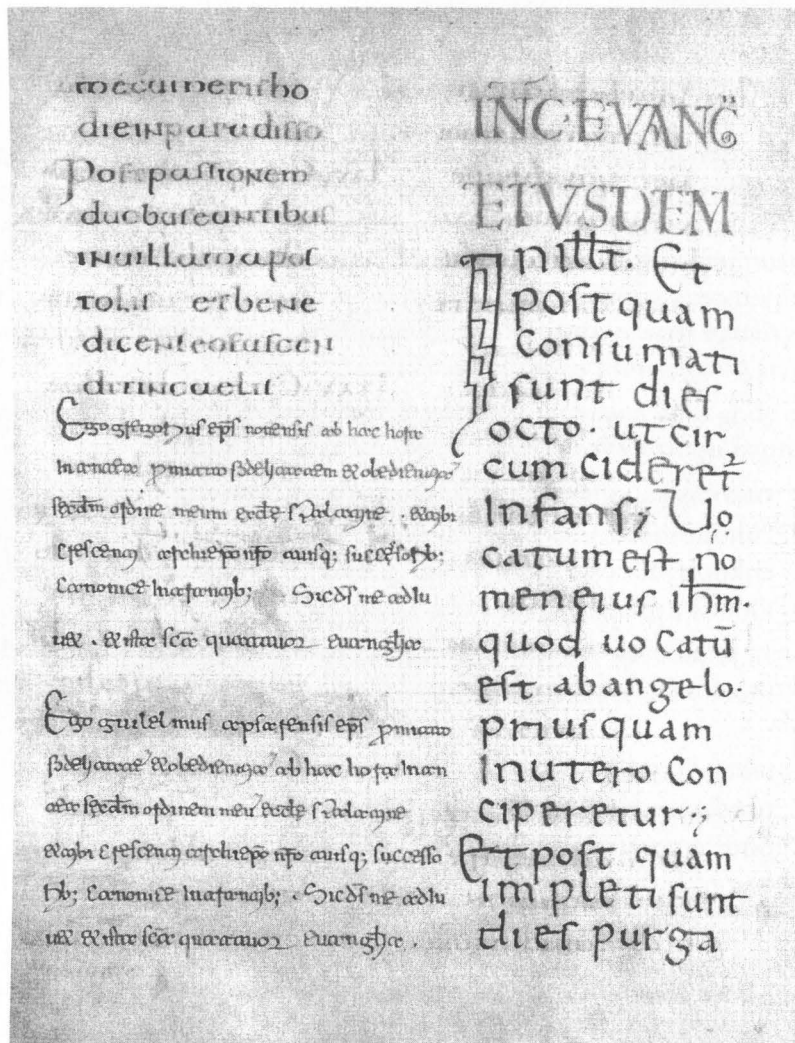 mecum eris ho
die in paradisso
Post passionem
duobus euntibus
in uillam apos
tolis et bene
dicens eos ascen
dit in caelis
Ego gregorius ep̄s nonensis ab hac hora
in antea promitto fidelitatem et obedientia
sec̄dm ordine meum eccłe spalatine. et tibi
crescenti archiep̄o nr̄o tuisq; successorib;
canonice intrantib; Sic d̄s me adiu
uet. et ista sc̄a quattuor euangha
Ego guilelmus apsarensis ep̄s promitto
fidelitate et obedientia ab hac hora in an
tea sec̄dm ordinem meu eccłe spalatine
et tibi crescenti archiep̄o nr̄o tuisq; successo
rib; canonice intrantib; . Sic d̄s me adiu
uet et ista sc̄a quattuor euangha .
INC̄·EVANG̃
EIVSDEM
In illt̄. Et
post quam
Consumati
sunt dies
octo· ut cir
cum cideret²
Infans; Uo
catum est no
men eius ih̄m·
quod uo catū
est ab angelo·
prius quam
In utero con
ciperetur·;
Et post quam
impleti sunt
dies purga